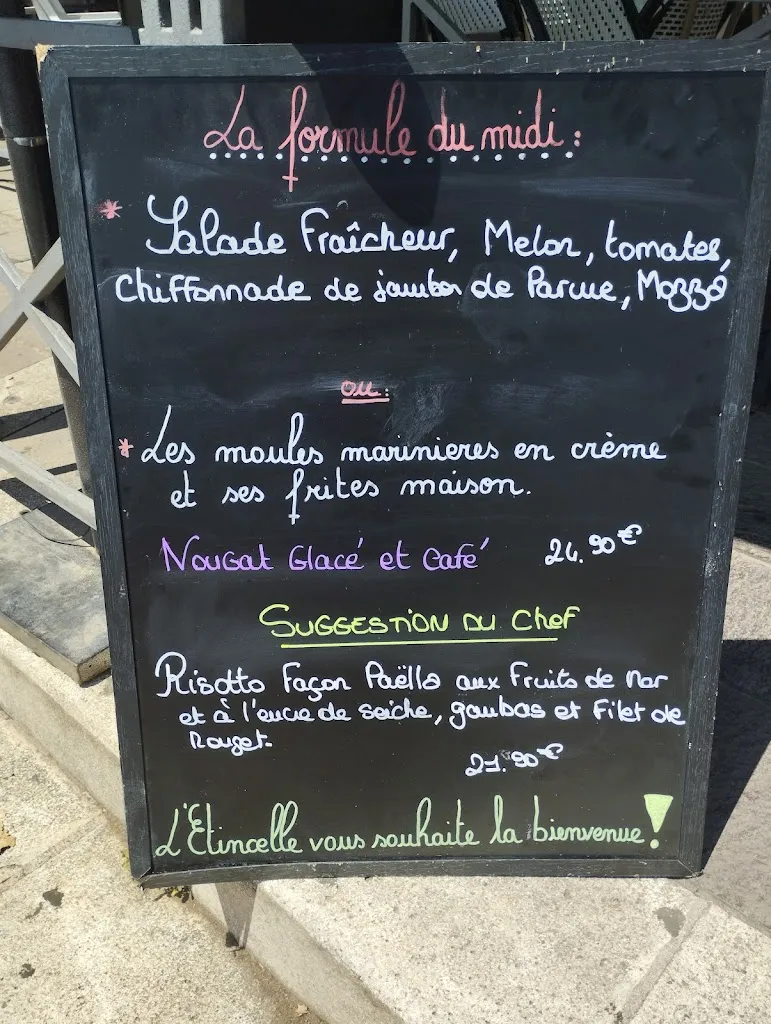 La formule du midi :
* Salade Fraîcheur, Melon, tomates,
Chiffonnade de jambon de Parme, Mozza
ou :
* Les moules marinieres en crème
et ses frites maison.
Nougat Glacé et Café 24.90€
Suggestion du Chef
Risotto Façon Paëlla aux Fruits de Mar
et à l'encre de seiche, gambas et Filet de
Rouget.
21.90€
L'Etincelle vous souhaite la bienvenue !